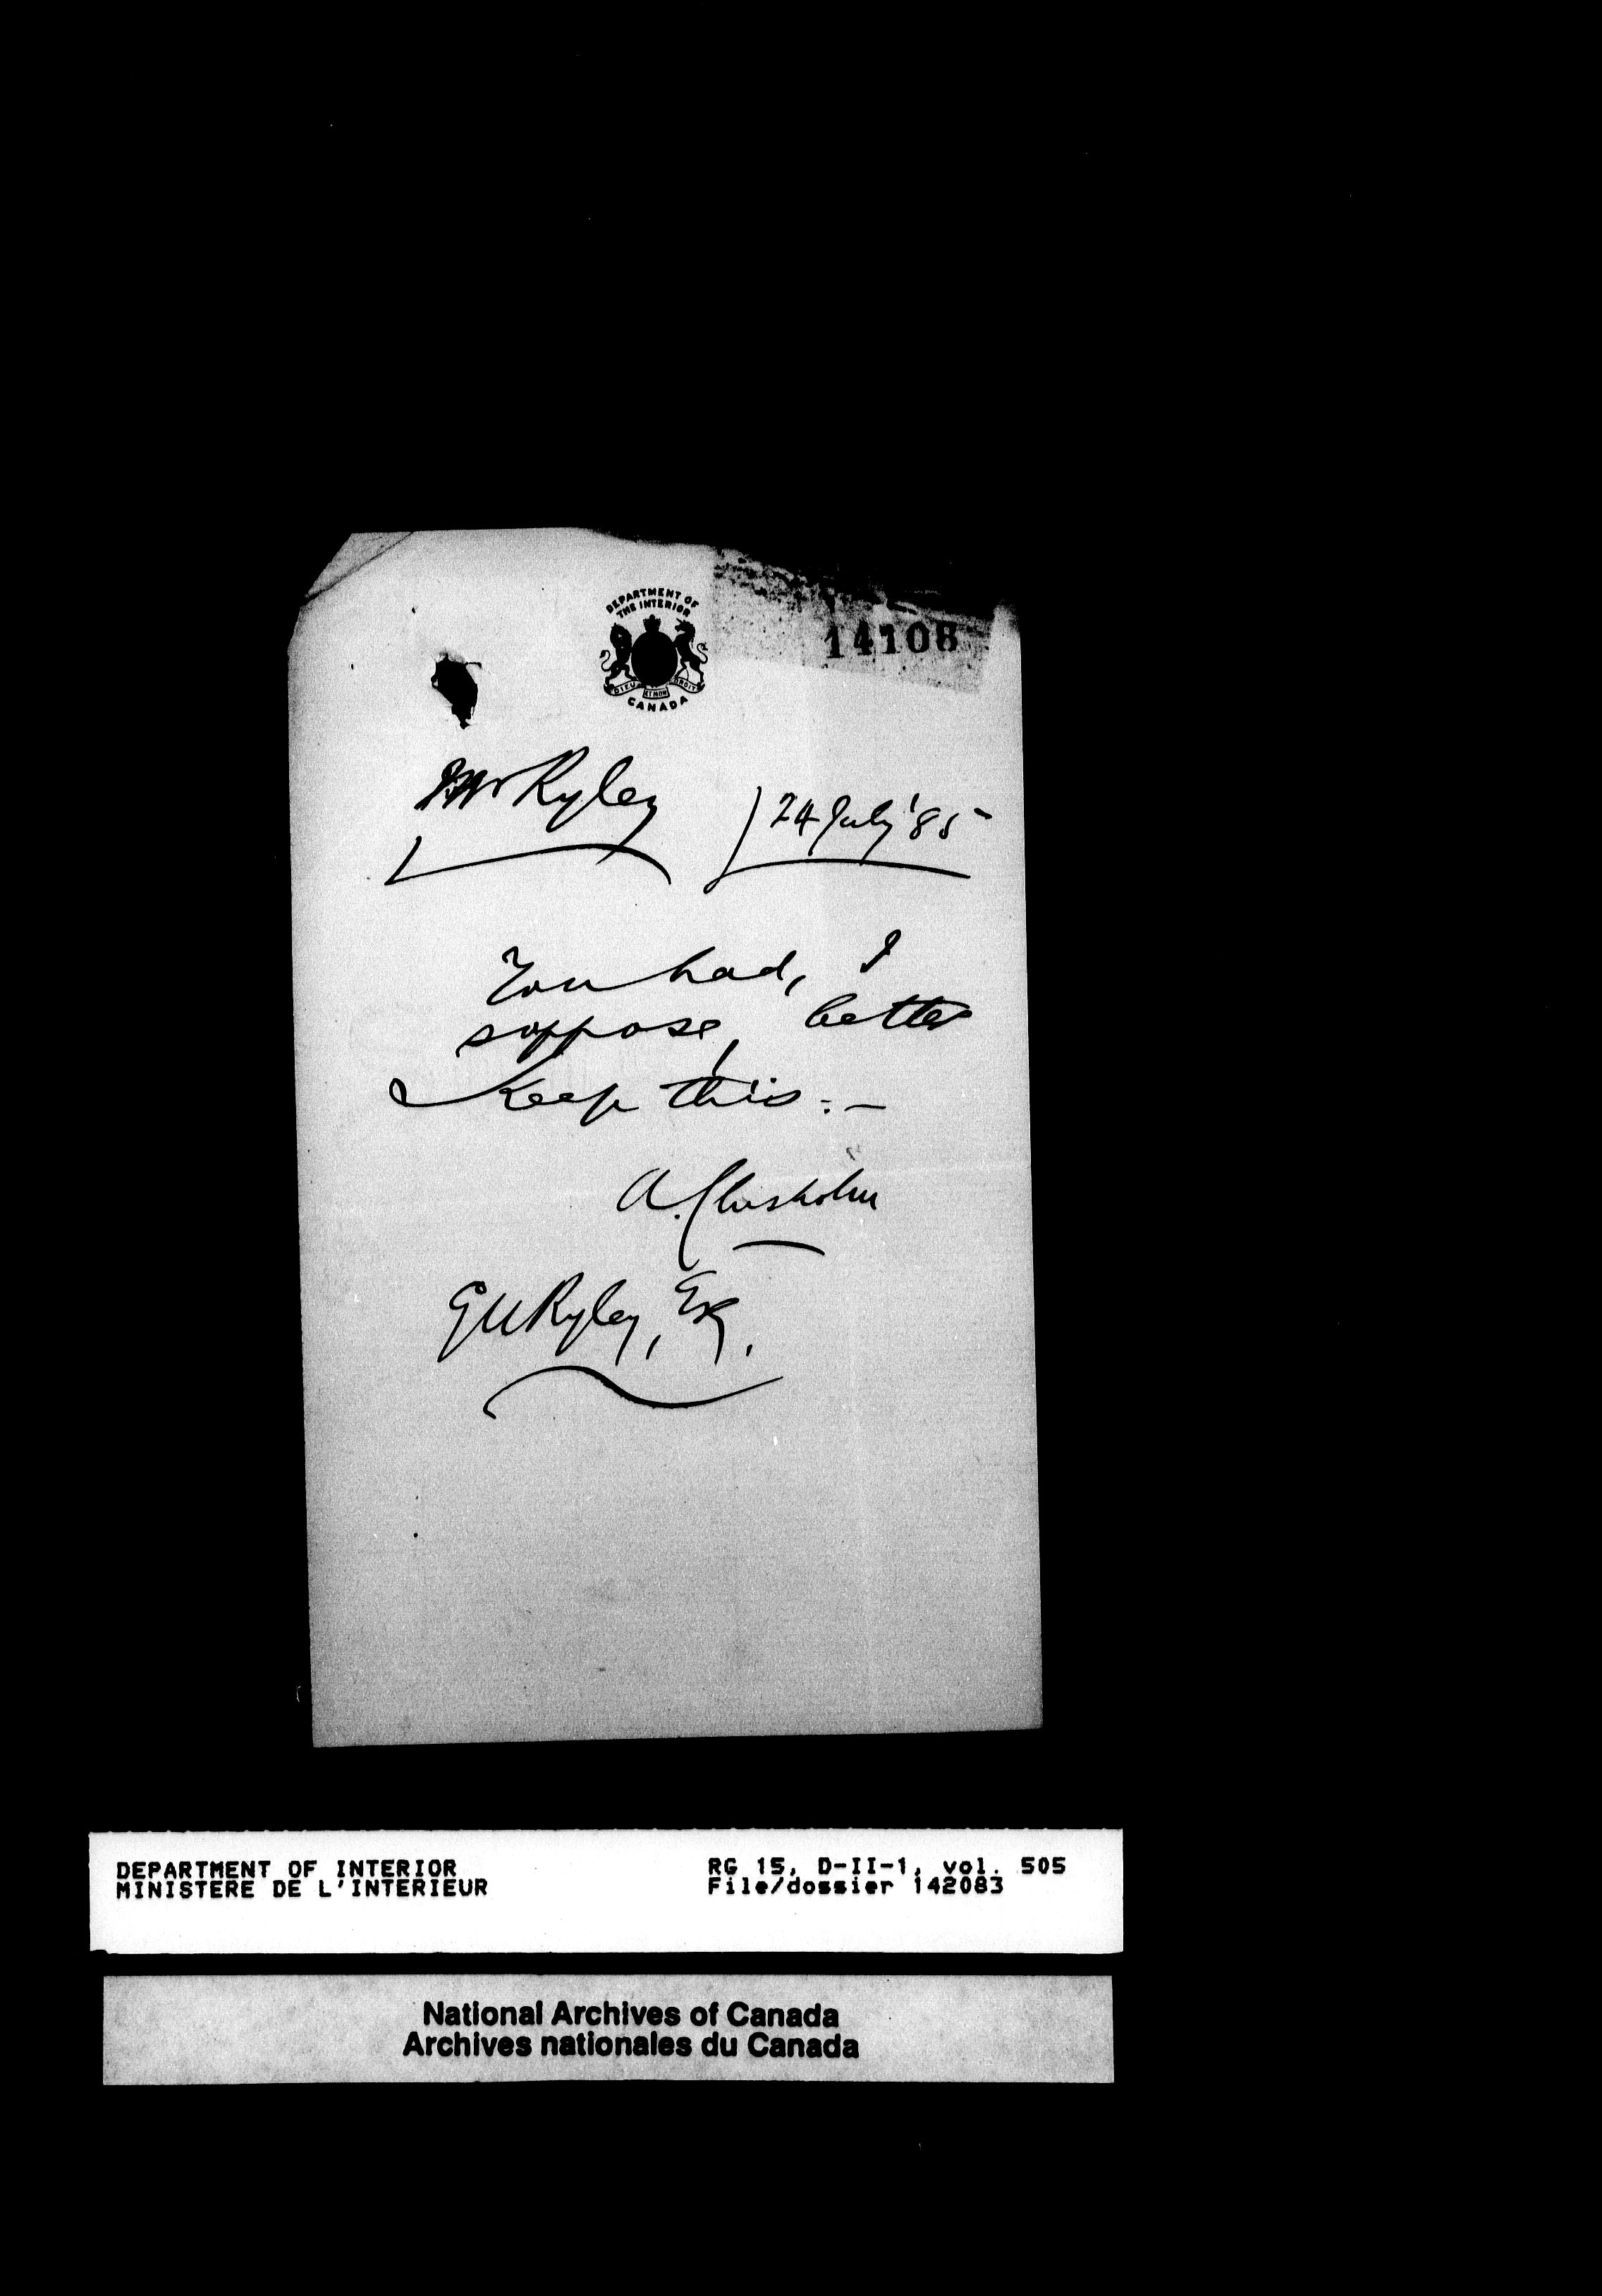 DEPARTMENT OF
THE INTERIOR
14108
DIEU ET MON DROIT
CANADA
Mr Ryley
24 July '85
You had, I
suppose, better
Keep this:—
A. Chisholm
G U Ryley, Esq.
DEPARTMENT OF INTERIOR
MINISTERE DE L'INTERIEUR
RG 15, D-II-1, vol. 505
File/dossier 142083
National Archives of Canada
Archives nationales du Canada